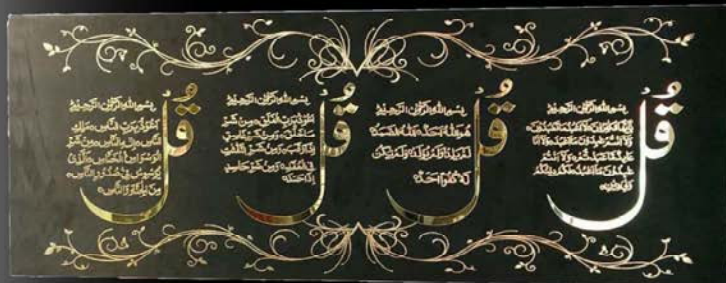 قُلْ
بِسْمِ اللهِ الرَّحْمٰنِ الرَّحِيْمِ
يٰٓاَيُّهَا الْكٰفِرُوْنَ لَآ اَعْبُدُ مَا تَعْبُدُوْنَ
وَلَآ اَنْتُمْ عٰبِدُوْنَ مَآ اَعْبُدُ وَلَآ اَنَا
عَابِدٌ مَّا عَبَدْتُّمْ وَلَآ اَنْتُمْ
عٰبِدُوْنَ مَآ اَعْبُدُ لَكُمْ دِيْنُكُمْ
وَلِيَ دِيْنِ
قُلْ
بِسْمِ اللهِ الرَّحْمٰنِ الرَّحِيْمِ
هُوَ اللهُ اَحَدٌ اَللهُ الصَّمَدُ
لَمْ يَلِدْ وَلَمْ يُوْلَدْ وَلَمْ يَكُنْ
لَّهٗ كُفُوًا اَحَدٌ
قُلْ
بِسْمِ اللهِ الرَّحْمٰنِ الرَّحِيْمِ
اَعُوْذُ بِرَبِّ الْفَلَقِ مِنْ شَرِّ
مَا خَلَقَ وَمِنْ شَرِّ غَاسِقٍ
اِذَا وَقَبَ وَمِنْ شَرِّ النَّفّٰثٰتِ
فِي الْعُقَدِ وَمِنْ شَرِّ حَاسِدٍ
اِذَا حَسَدَ
قُلْ
بِسْمِ اللهِ الرَّحْمٰنِ الرَّحِيْمِ
اَعُوْذُ بِرَبِّ النَّاسِ مَلِكِ
النَّاسِ اِلٰهِ النَّاسِ مِنْ شَرِّ
الْوَسْوَاسِ الْخَنَّاسِ الَّذِيْ
يُوَسْوِسُ فِيْ صُدُوْرِ النَّاسِ
مِنَ الْجِنَّةِ وَالنَّاسِ